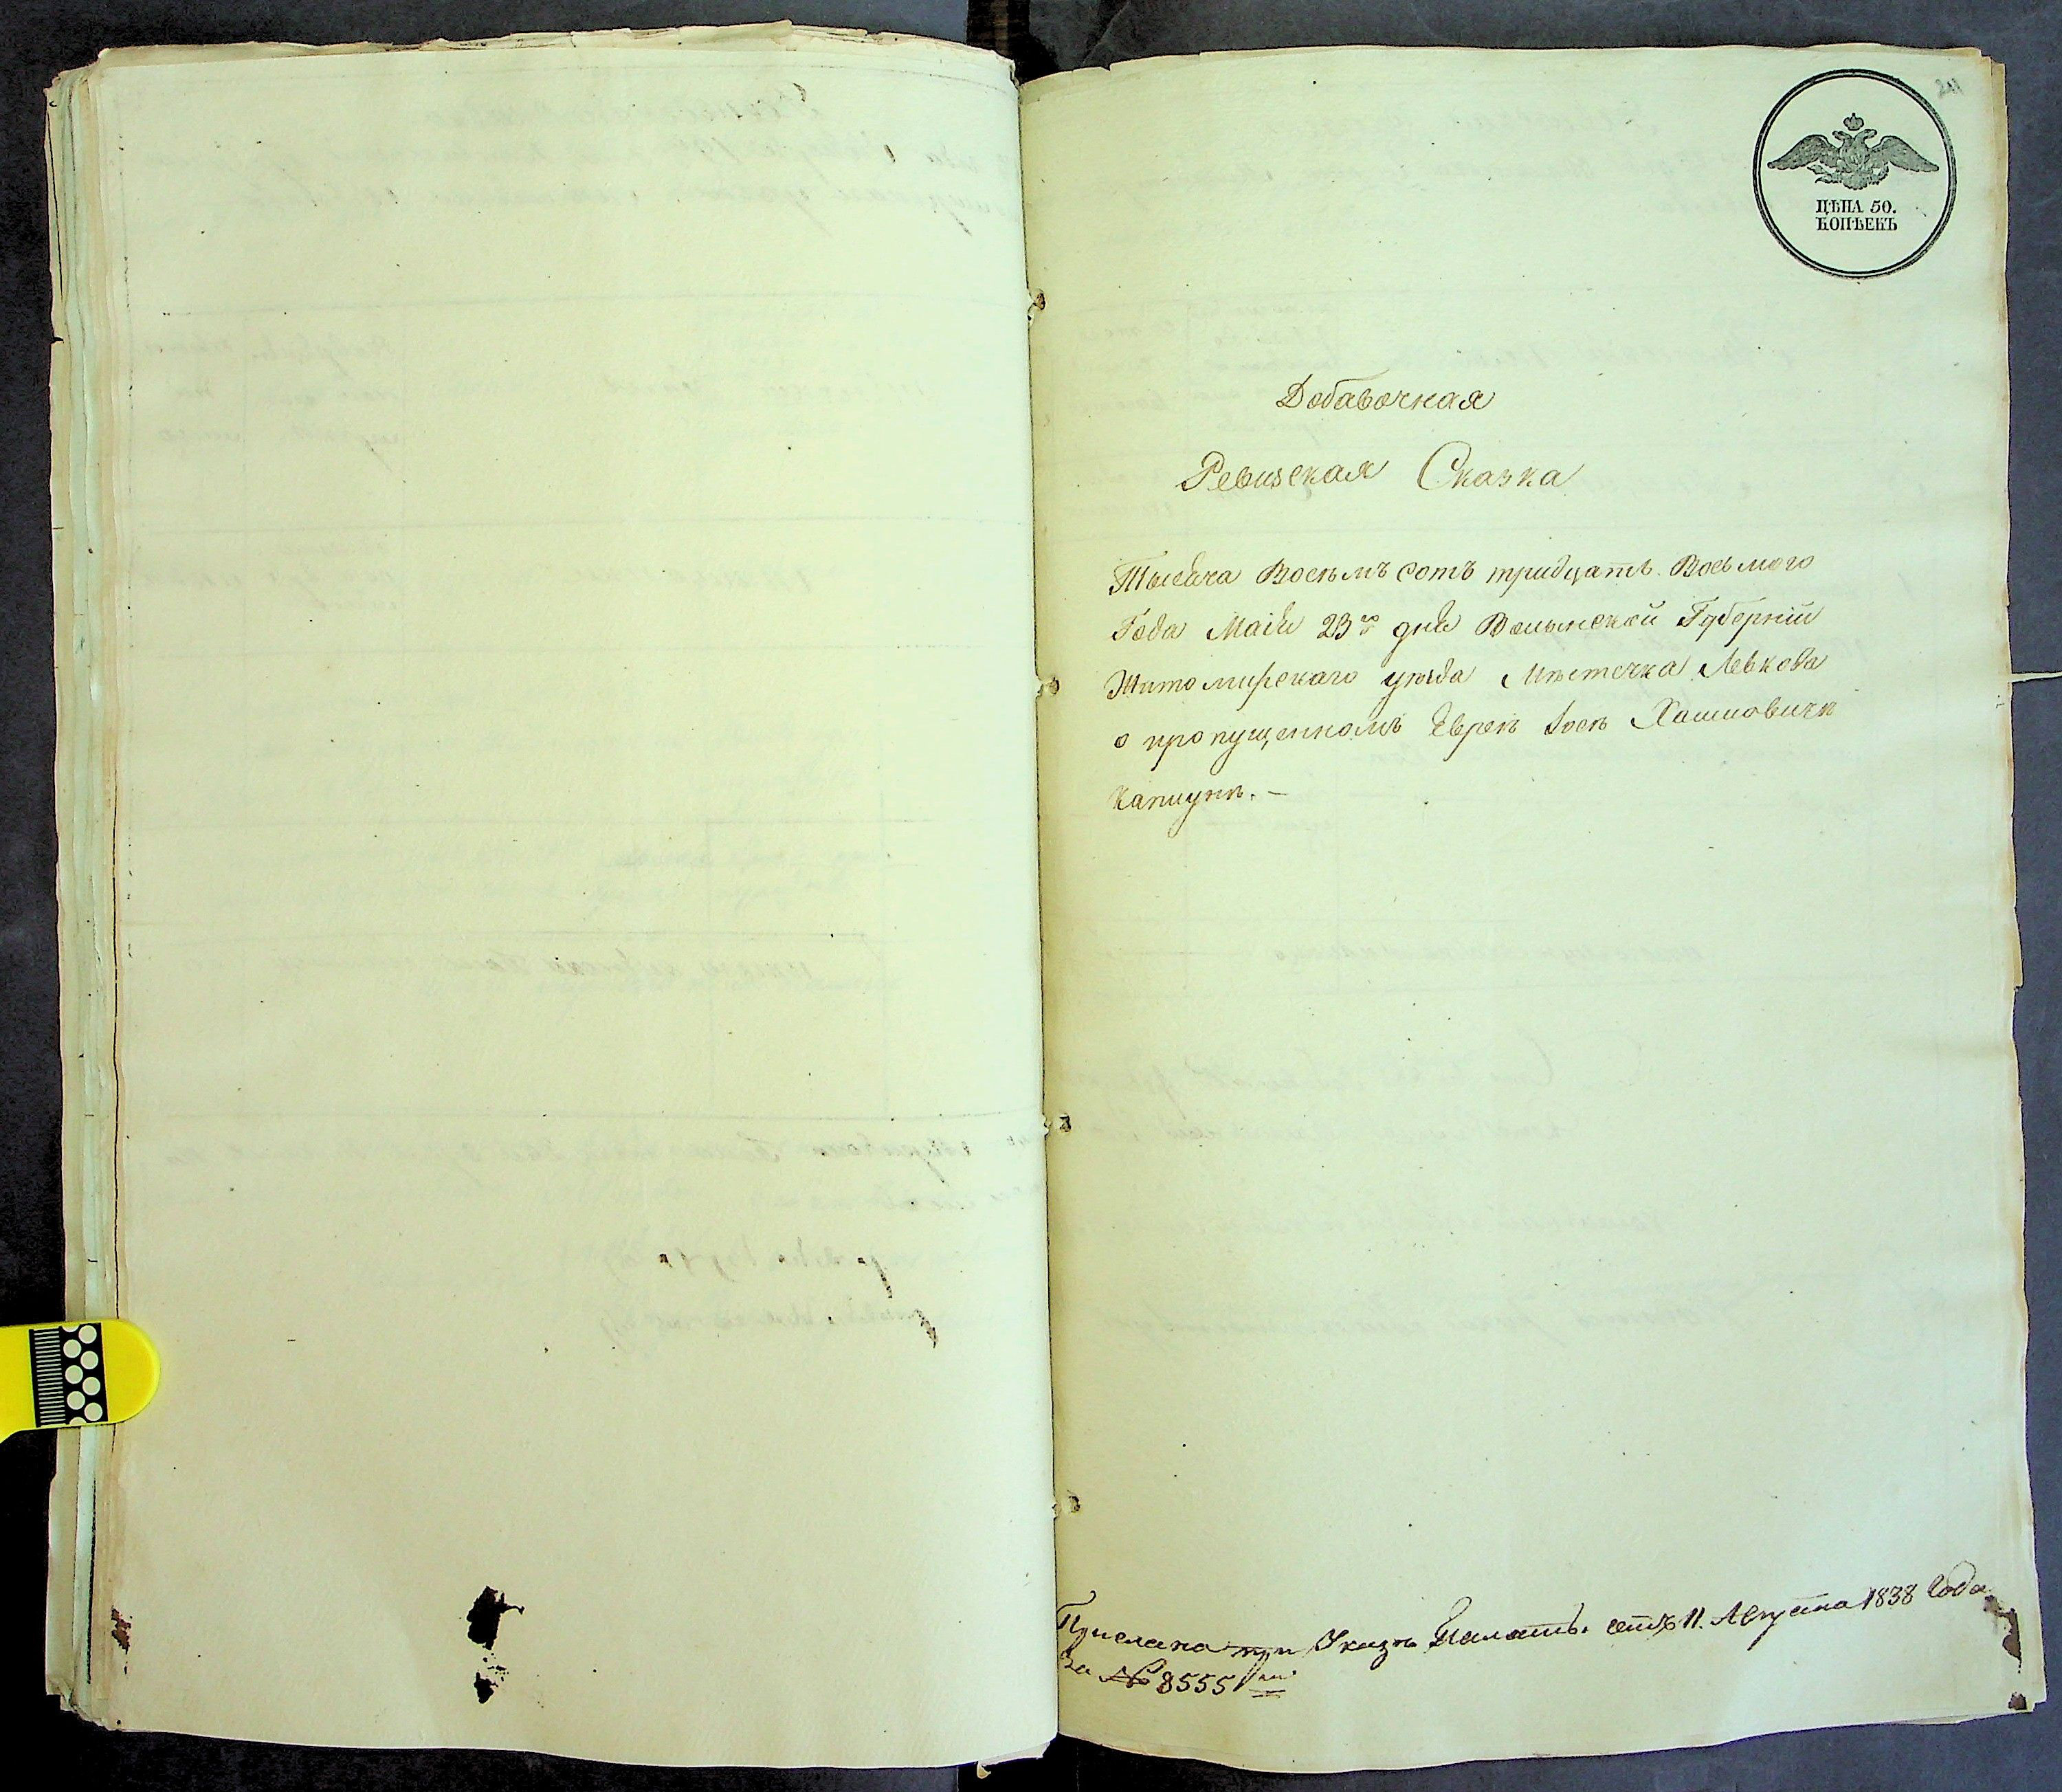 211
ЦѢНА 50.
КОПѢЕКЪ
Добавочная
Ревизская Сказка
Тысяча Восѣмъ сотъ тридцать Восьмого
Года Маія 23го дня Волынской Губерніи
Житомирскаго уѣзда Мѣстечка Левкова
о пропущенномъ Евреѣ Іосѣ Хаимовичѣ
Капщукѣ. —
Прислана при Указѣ Палаты отъ 11. Августа 1838 Года
За № 8555мъ